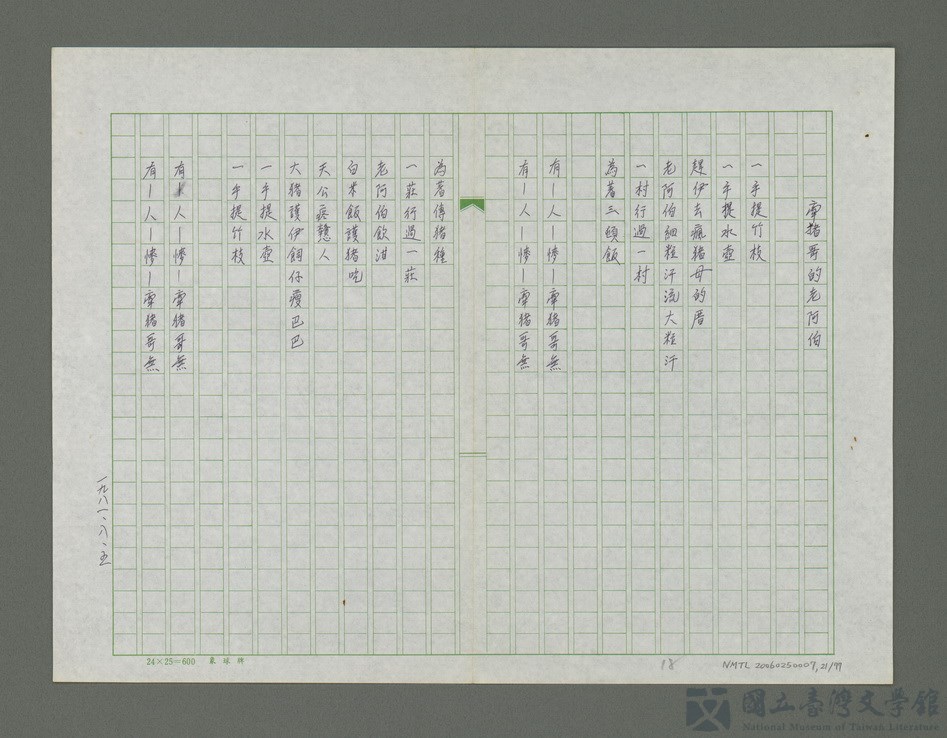 牽猪哥的老阿伯
一手提竹枝
一手提水壺
趕伊去瘋猪母的厝
老阿伯細粒汗流大粒汗
一村行過一村
為著三頓飯
有—人—慘—牽猪哥無
有—人—慘—牽猪哥無
為著傳猪種
一莊行過一莊
老阿伯飲泔
白米飯護猪吃
天公疼戇人
大猪護伊飼仔瘦巴巴
一手提水壺
一手提竹枝
有—人—慘—牽猪哥無
有—人—慘—牽猪哥無
一九八一、八、五
24×25=600
18
NMTL 20060250007,21/77
國立臺灣文學館
National Museum of Taiwan Literature